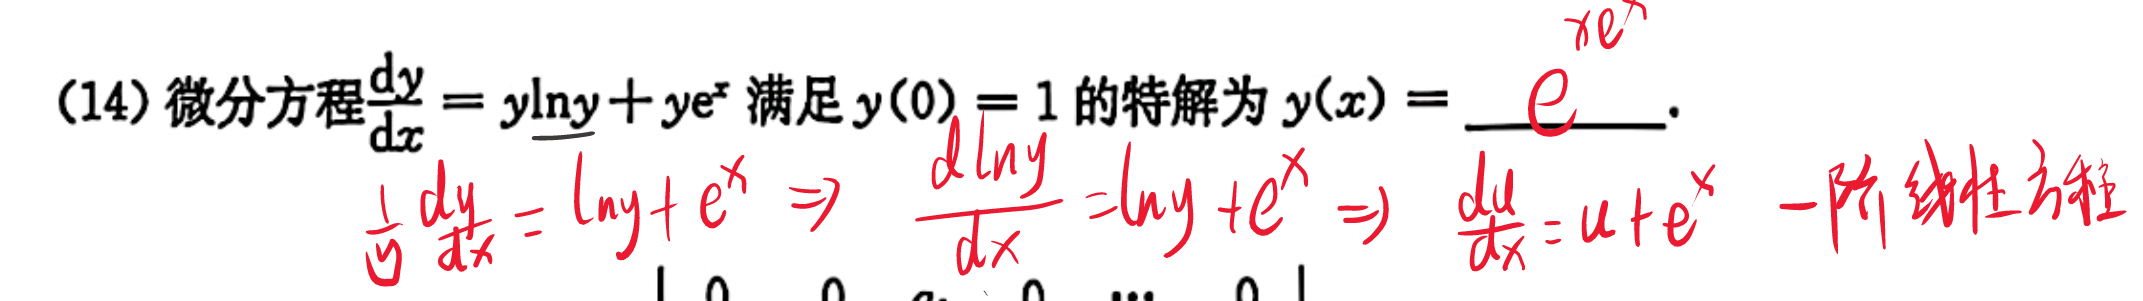 (14) 微分方程 dy/dx = ylny + ye^x 满足 y(0) = 1 的特解为 y(x) = e^{xe^x} .
1/y dy/dx = lny + e^x ⇒ dlny/dx = lny + e^x ⇒ du/dx = u + e^x 一阶线性方程